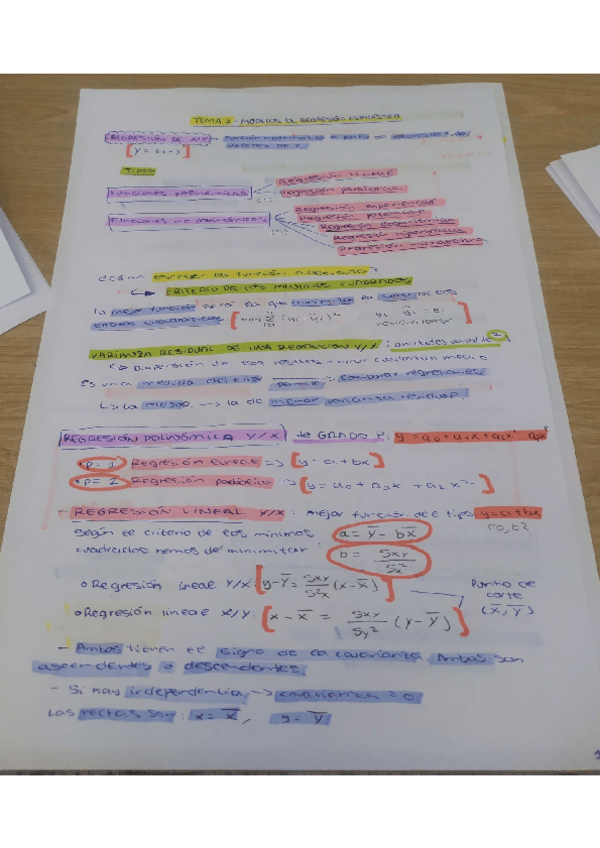 TEMA 2 - MODELOS DE REGRESIÓN ESTADÍSTICA
REGRESIÓN DE X/Y = función matemática a partir de valores de
valores de Y.
TIPOS
Regresión lineal
Funciones polinómicas
Regresión parabólica.
Regresión exponencial
Funciones no polinómicas
Regresión potencial
Regresión logarítmica
Regresión hiperbólica
Regresión
la función
CRITERIO DE LOS MÍNIMOS CUADRADOS
la mejor función es la que minimiza la suma de los
errores cuadráticos
VARIANZA RESIDUAL DE UNA REGRESIÓN Y/X (unidades 2)
↳ Dispersión de los residuos = error cuadrático medio
Es una medida del error permite: comparar regresiones.
↳ La mejor → la de menor varianza residual.
REGRESIÓN POLINÓMICA Y/X de GRADO P:
• p = 1 Regresión lineal => [y = a + bx]
• p = 2 Regresión parabólica => [y = a0 + a1x + a2x²]
- REGRESIÓN LINEAL Y/X: mejor función del tipo y = a + bx
según el criterio de los mínimos ¿a, b?
cuadrados hemos de minimizar a = ȳ - bx̄
b = Sxy / Sx²
o Regresión lineal Y/X: [y - ȳ = Sxy/S²x (x - x̄)] Punto de
corte
o Regresión lineal X/Y: [x - x̄ = Sxy/Sy² (y - ȳ)] (x̄, ȳ)
- Ambas tienen el signo de la covarianza. Ambas son
ascendentes o descendentes.
- Si hay independencia → covarianza = 0
Las rectas son: x = x̄, y = ȳ
1